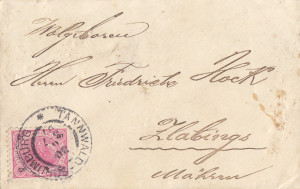 Wohlgeboren
Herrn Friedrich Hock
Zlabings
Mähren
TANNWALD